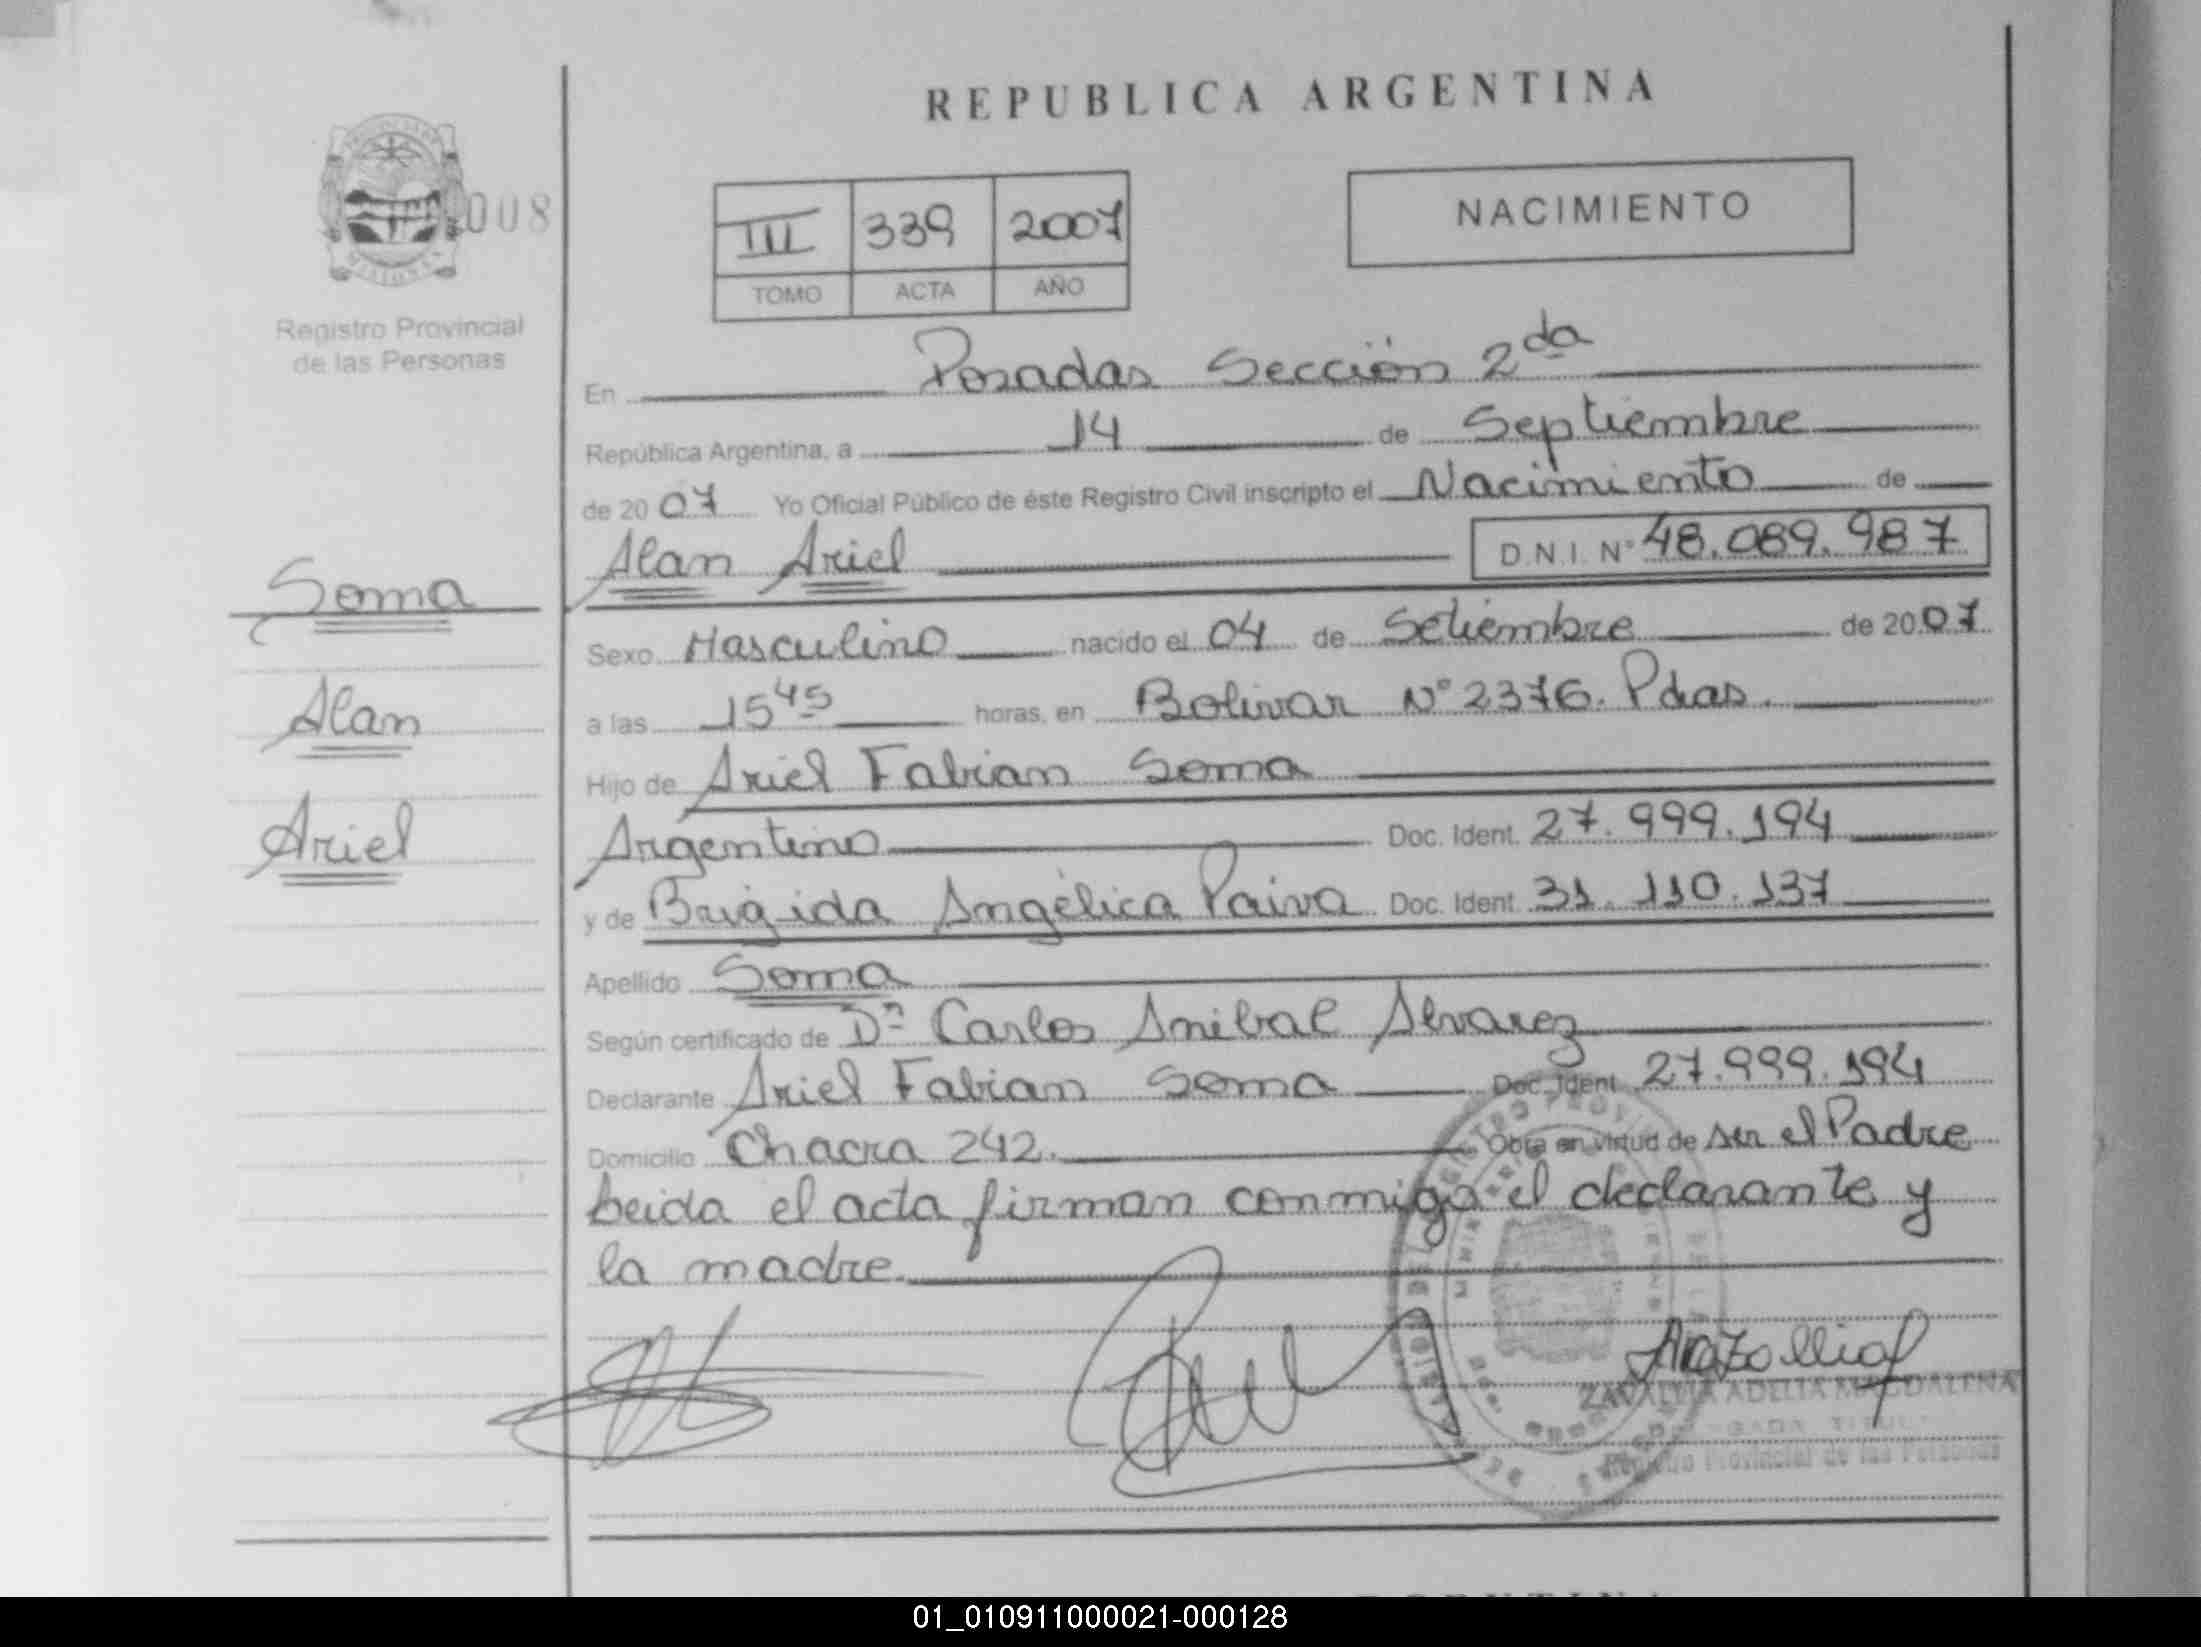 REPUBLICA ARGENTINA
008
III 339 2007
TOMO ACTA AÑO
NACIMIENTO
MISIONES
Registro Provincial
de las Personas
En Posadas Sección 2da
República Argentina, a 14 de Septiembre
de 2007 Yo Oficial Público de éste Registro Civil inscripto el Nacimiento de
Alan Ariel D.N.I. Nº 48.089.987
Soma
Sexo Masculino nacido el 04 de Setiembre de 2007
Alan
a las 15 45 horas, en Bolivar Nº 2376. Pdas.
Hijo de Ariel Fabian Soma
Ariel
Argentino Doc. Ident. 27.999.194
y de Brigida Angélica Paiva Doc. Ident. 31.110.137
Apellido Soma
Según certificado de Dr Carlos Anibal Alvarez
Declarante Ariel Fabian Soma Doc. Ident. 27.999.194
Domicilio Chacra 242. Obra en virtud de ser el Padre
Leida el acta firman conmigo el declarante y
la madre.
ADELIA MAGDALENA
Registro Provincial de las Personas
01_010911000021-000128